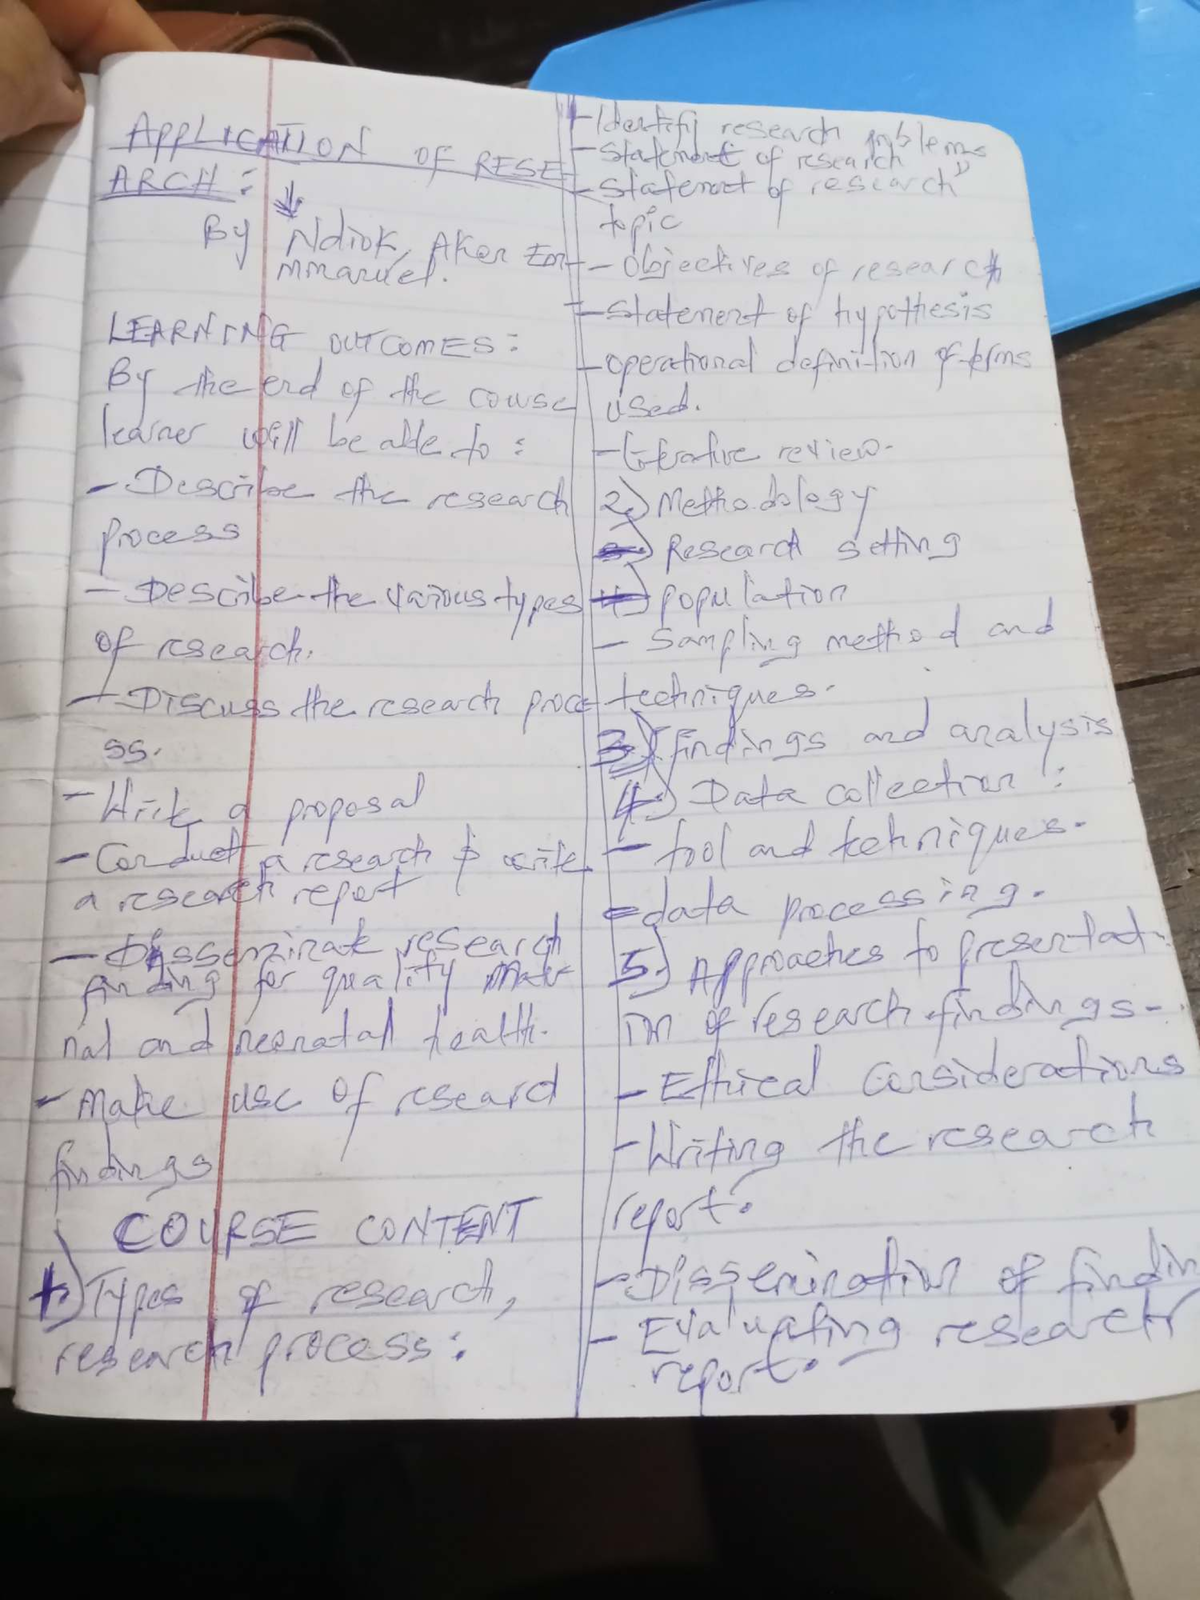 APPLICATION OF RESE
ARCH:
By Ndiok, Aken Em
mmanuel.
LEARNING OUTCOMES:
By the end of the course
learner will be able to:
- Describe the research
process
- Describe the various types
of research.
- Discuss the research proce
ss.
- Write a proposal
- Conduct a research & write
a research report
- Disseminate research
finding for quality mater
nal and neonatal health.
- Make use of research
findings
COURSE CONTENT
1.) Types of research,
research process:
- Identify research problems
- statement of research "
- statement of research
topic
- Objectives of research
- statement of hypothesis
- operational definition of terms
used.
- literative review.
2.) Methodology
Research setting
population
- Sampling method and
techniques.
3.) findings and analysis
4.) Data collection:
- tool and tehniques.
- data processing.
5.) Approaches to presentat-
ion of research findings-
- Ethical Considerations
- Writing the research
report.
- Dissemination of findin
- Evaluating research
report.